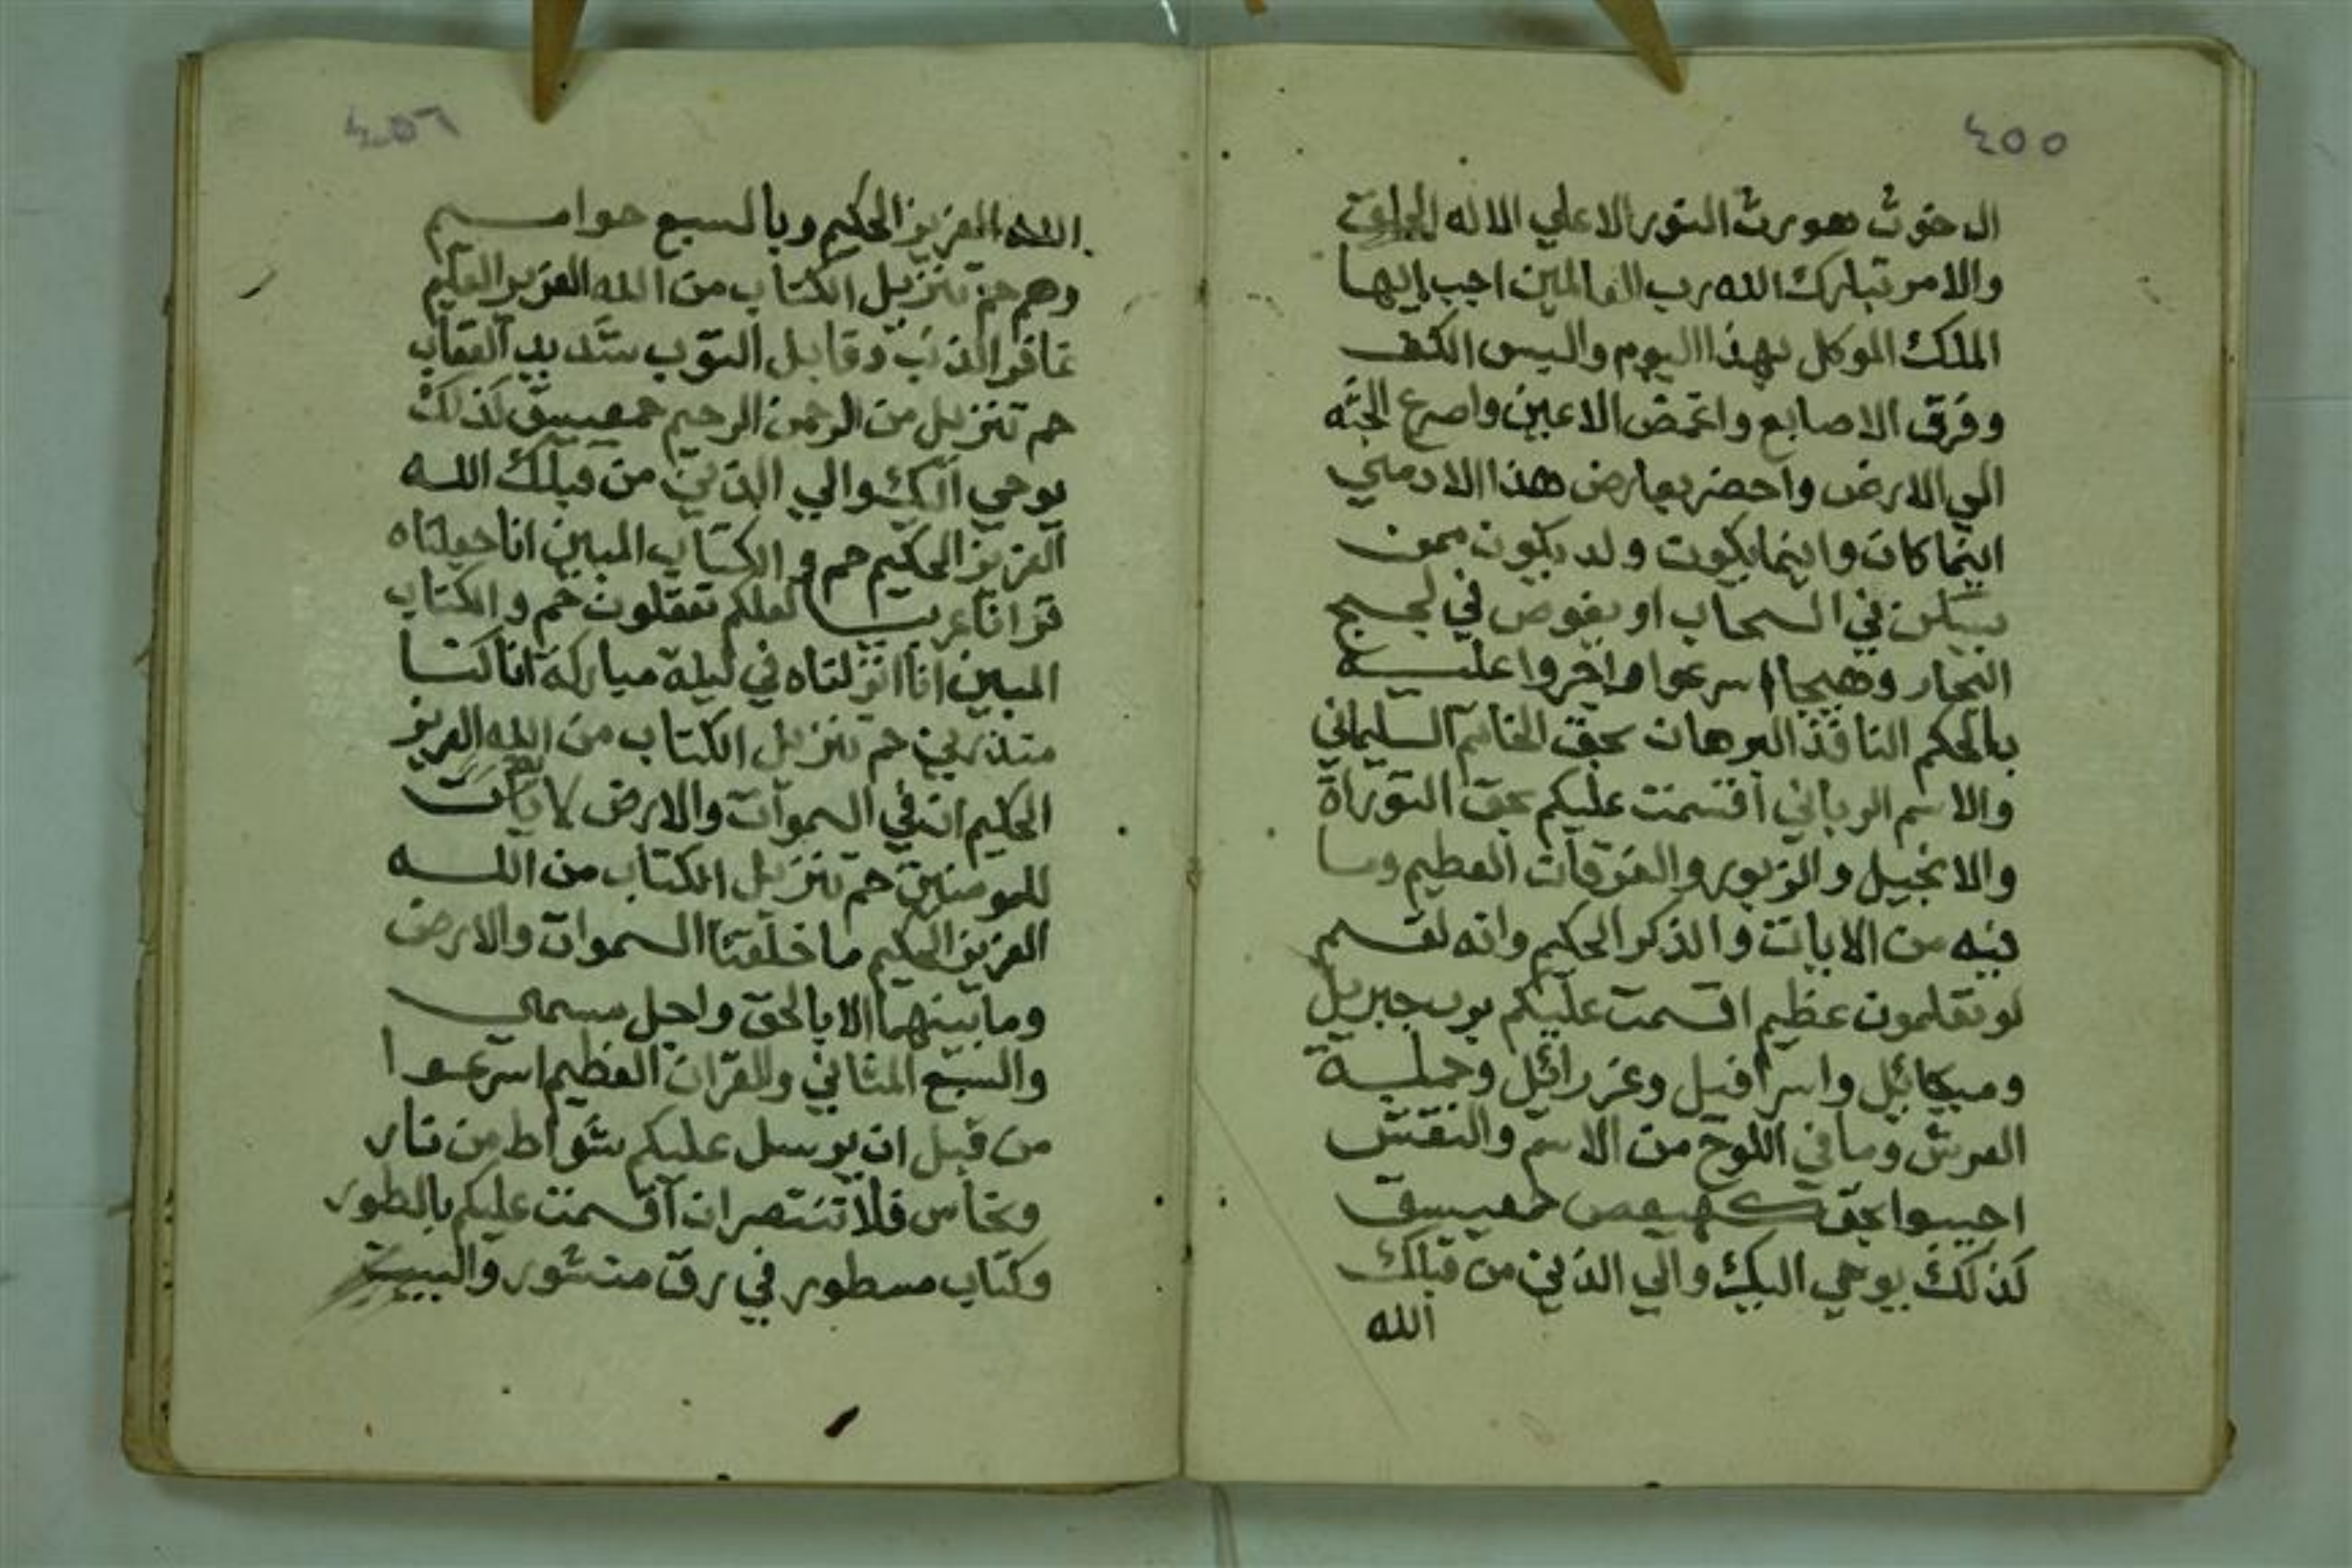 ٤٥٥
ال حوث هورث النور الاعلي الاله الخلق
والامر تبارك الله رب العالمين اجب ايها
الملك الموكل بهذا اليوم والبس الكف
وفرق الاصابع واغمض الاعين واصرع الجثه
الي الارض واحضر بعارض هذا الادمي
اينما كان واينما يكون ولد يكون ممن
يسكن في السحاب او يغوص في لججج
البحار وهيجا اسرعوا واجروا عليه
بالحكم النافذ البرهان بحق الخاتم السليماني
والاسم الرباني اقسمت عليكم بحق التوراة
والانجيل والزبور والفرقان العظيم وما
فيه من الايات والذكر الحكيم وانه لقسم
لو تعلمون عظيم اقسمت عليكم برب جبريل
وميكائيل واسرافيل وعزرائيل وحملة
العرش وما في اللوح من الاسم والنقش
اجيبوا بحق كهيعص حمعسق
كذلك يوحي اليك والي الذين من قبلك
الله
٤٥٦
الله العزيز الحكيم وبالسبع حواميم
وهم حم تنزيل الكتاب من الله العزيز العليم
غافر الذنب وقابل التوب شديد العقاب
حم تنزيل من الرحمن الرحيم حمعسق كذلك
يوحي اليك والي الذين من قبلك الله
العزيز الحكيم حم والكتاب المبين انا جعلناه
قرانا عربيا لعلكم تعقلون حم والكتاب
المبين انا انزلناه في ليلة مباركة انا كنا
منذرين حم تنزيل الكتاب من الله العزيز
الحكيم ان في السموات والارض لايات
للمومنين حم تنزيل الكتاب من الله
العزيز الحكيم ما خلقنا السموات والارض
وما بينهما الا بالحق واجل مسمي
والسبع المثاني والقران العظيم اسرعوا
من قبل ان يرسل عليكم شواط من نار
ونحاس فلا تنتصران اقسمت عليكم بالطور
وكتاب مسطور في رق منشور والبيت